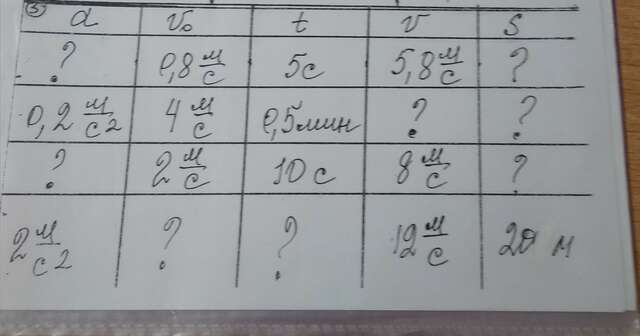 ③ a v₀ t v S
? 0,8 м/с 5с 5,8 м/с ?
0,2 м/с2 4 м/с 0,5мин ? ?
? 2 м/с 10 с 8 м/с ?
2 м/с2 ? ? 12 м/с 20 м